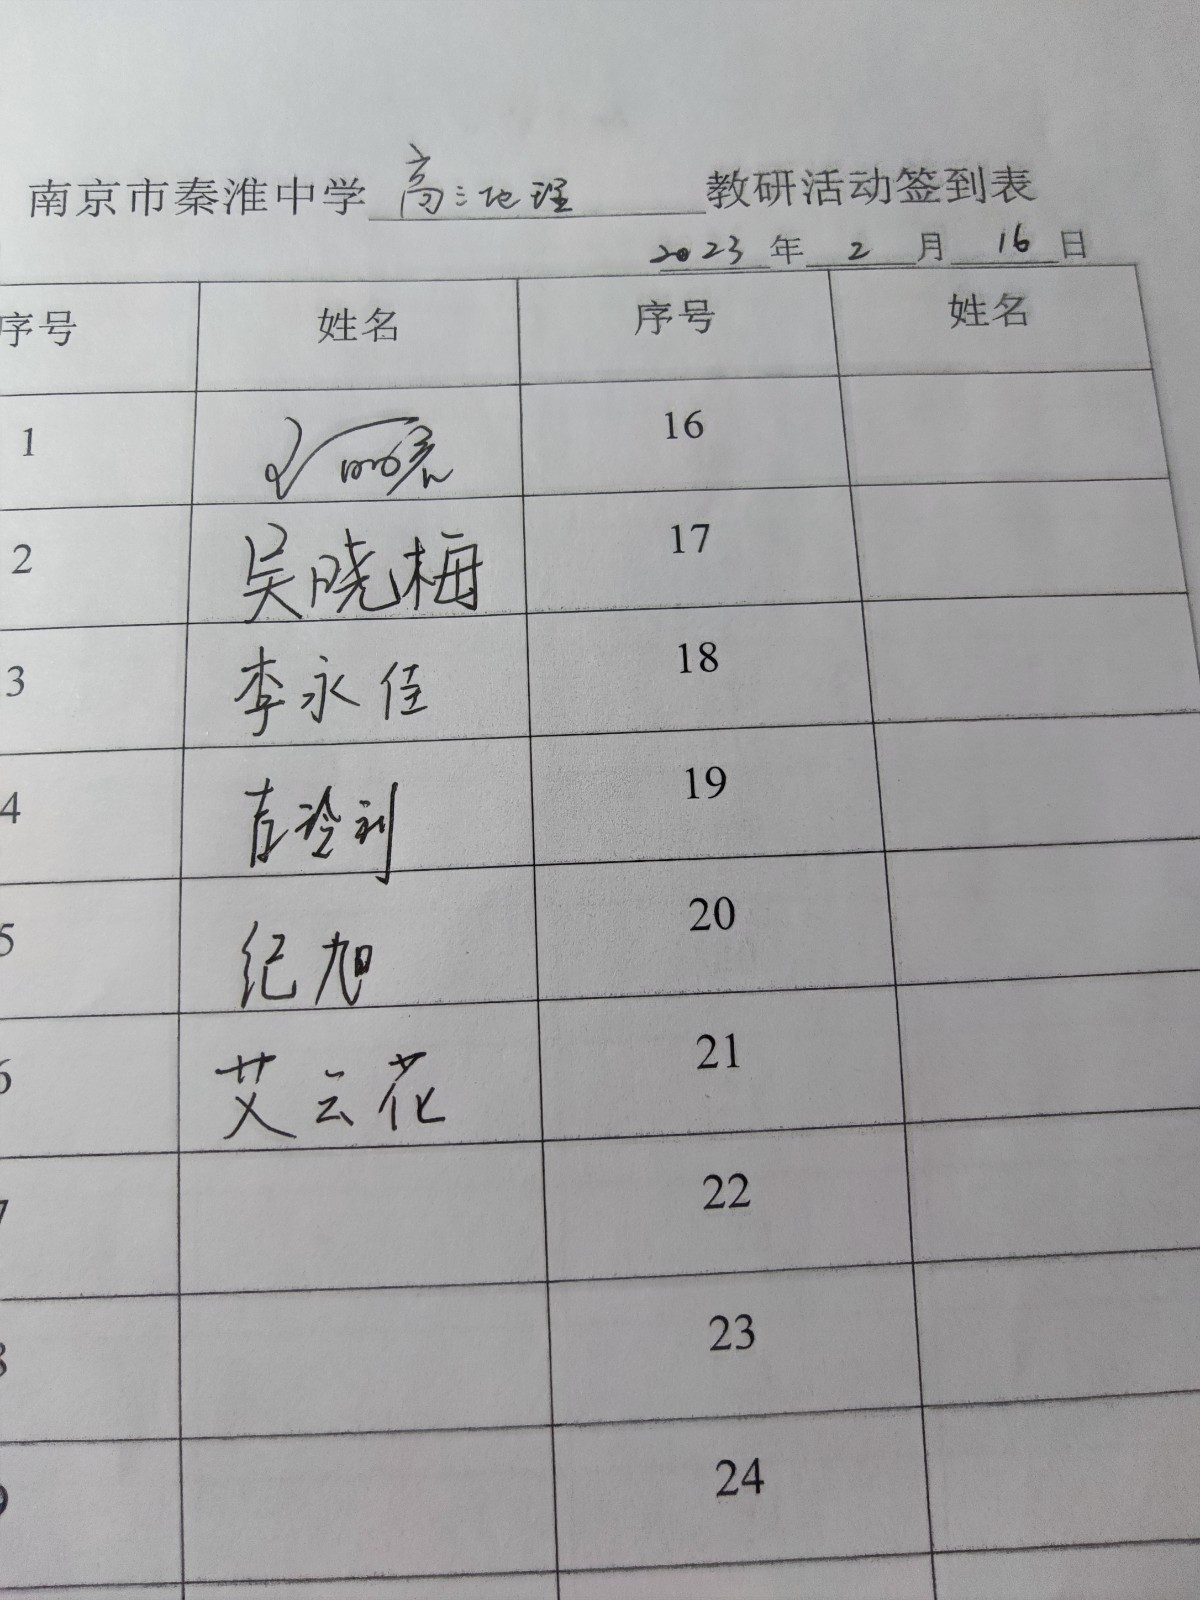 南京市秦淮中学 高三地理 教研活动签到表
2023 年 2 月 16 日
序号 姓名 序号 姓名
1 16
2 吴晓梅 17
3 李永佳 18
4 19
5 纪旭 20
6 艾云花 21
7 22
8 23
9 24